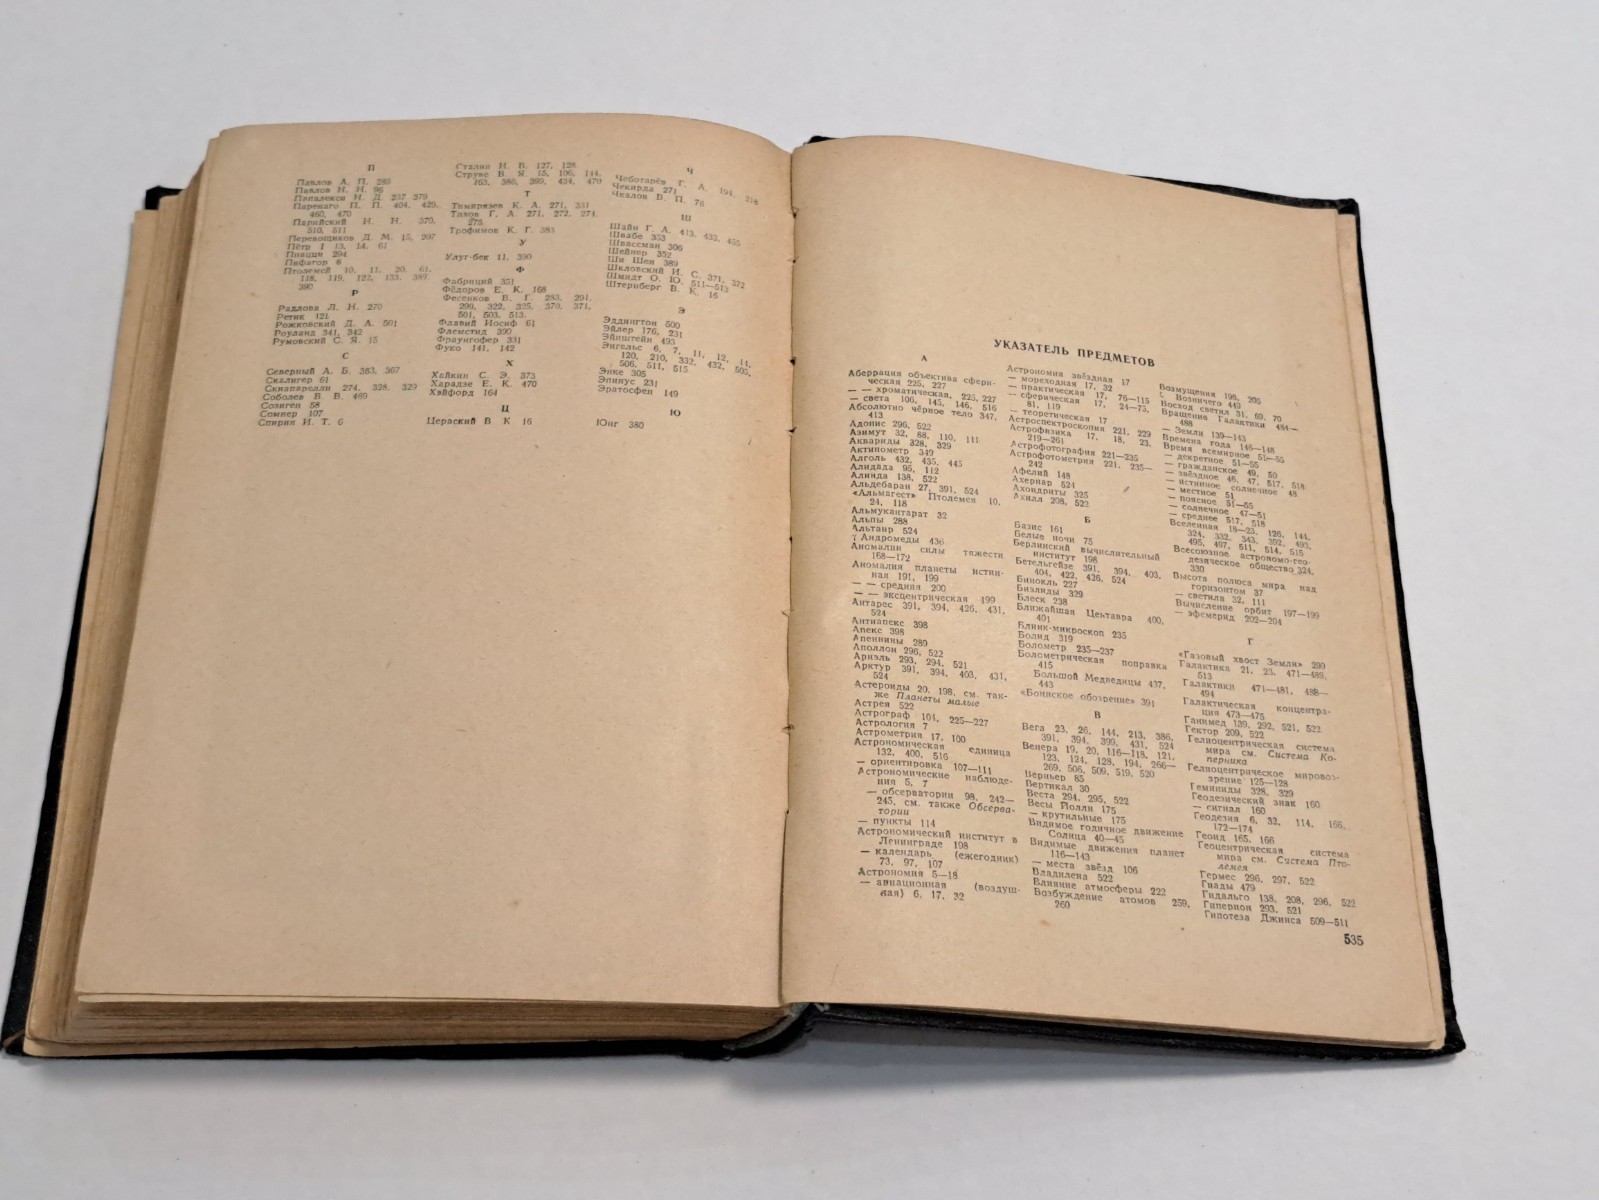 П
Павлов А. П. 289
Павлов Н. Н. 96
Папалекси Н. Д. 237 379
Паренаго П. П. 404, 429,
460, 470
Парийский Н. Н. 370,
510, 511
Перевощиков Д. М. 15, 297
Пётр I 13, 14, 61
Пиацци 294
Пифагор 8
Птолемей 10, 11, 20, 61,
118, 119, 122, 133, 389,
390
Р
Радлова Л. Н. 270
Ретик 121
Рожковский Д. А. 501
Роуланд 341, 342
Румовский С. Я. 15
С
Северный А. Б. 363, 367
Скалигер 61
Скиапарелли 274, 328, 329
Соболев В. В. 469
Созиген 58
Сомнер 107
Спирин И. Т. 6
Сталин И. В. 127, 128
Струве В. Я. 15, 106, 144,
163, 386, 399, 434, 470
Т
Тимирязев К. А. 271, 331
Тихов Г. А. 271, 272, 274,
275
Трофимов К. Г. 383
У
Улуг-бек 11, 390
Ф
Фабриций 351
Фёдоров Е. К. 168
Фесенков В. Г. 283, 291,
299, 322, 325, 370, 371,
501, 503, 513.
Флавий Иосиф 61
Флемстид 390
Фраунгофер 331
Фуко 141, 142
Х
Хайкин С. Э. 373
Харадзе Е. К. 470
Хэйфорд 164
Ц
Цераский В. К 16
Ч
Чеботарёв Г. А. 194, 216
Чекирда 271
Чкалов В. П. 76
Ш
Шайн Г. А. 413, 433, 455
Швабе 353
Швассман 306
Шейнер 352
Ши Шен 389
Шкловский И. С. 371, 372
Шмидт О. Ю. 511—513
Штернберг В. К. 16
Э
Эддингтон 500
Эйлер 176, 231
Эйнштейн 493
Энгельс 6, 7, 11, 12, 14,
120, 210, 332, 432, 505,
506, 511, 515
Энке 305
Эпинус 231
Эратосфен 149
Ю
Юнг 380
УКАЗАТЕЛЬ ПРЕДМЕТОВ
А
Аберрация объектива сфери-
ческая 225, 227
— — хроматическая, 225, 227
— света 106, 145, 146, 516
Абсолютно чёрное тело 347,
413
Адонис 296, 522
Азимут 32, 88, 110, 111
Аквариды 328, 329
Актинометр 349
Алголь 432, 435, 445
Алидада 95, 112
Алинда 138, 522
Альдебаран 27, 391, 524
«Альмагест» Птолемея 10,
24, 118
Альмукантарат 32
Альпы 288
Альтаир 524
γ Андромеды 436
Аномалии силы тяжести
168—172
Аномалия планеты истин-
ная 191, 199
— — средняя 200
— — эксцентрическая 199
Антарес 391, 394, 426, 431,
524
Антиапекс 398
Апекс 398
Апеннины 289
Аполлон 296, 522
Ариэль 293, 294, 521
Арктур 391, 394, 403, 431,
524
Астероиды 20, 198, см. так-
же Планеты малые
Астрея 522
Астрограф 101, 225—227
Астрология 7
Астрометрия 17, 100
Астрономическая единица
132, 400, 516
— ориентировка 107—111
Астрономические наблюде-
ния 5, 7
— обсерватории 98, 242—
245, см. также Обсерва-
тории
— пункты 114
Астрономический институт в
Ленинграде 198
— календарь (ежегодник)
73, 97, 107
Астрономия 5—18
— авиационная (воздуш-
ная) 6, 17, 32
Астрономия звёздная 17
— мореходная 17, 32
— практическая 17, 76—115
— сферическая 17, 24—75,
81, 119
— теоретическая 17
Астроспектроскопия 221, 229
Астрофизика 17, 18, 23,
219—261
Астрофотография 221—235
Астрофотометрия 221, 235—
242
Афелий 148
Ахернар 524
Ахондриты 325
Ахилл 208, 522
Б
Базис 161
Белые ночи 75
Берлинский вычислительный
институт 198
Бетельгейзе 391, 394, 403,
404, 422, 426, 524
Бинокль 227
Бизлиды 329
Блеск 238
Ближайшая Центавра 400,
401
Блинк-микроскоп 235
Болид 319
Болометр 235—237
Болометрическая поправка
415
Большой Медведицы 437,
443
«Боннское обозрение» 391
В
Вега 23, 26, 144, 213, 386,
391, 394, 399, 431, 524
Венера 19, 20, 116—118, 121,
123, 124, 128, 194, 266—
269, 506, 509, 519, 520
Верньер 85
Вертикал 30
Веста 294, 295, 522
Весы Йолли 175
— крутильные 175
Видимое годичное движение
Солнца 40—45
Видимые движения планет
116—143
— места звёзд 106
Владилена 522
Влияние атмосферы 222
Возбуждение атомов 259,
260
Возмущения 198, 205
ζ Возничего 449
Восход светил 31, 69, 70
Вращение Галактики 484—
488
— Земли 139—143
Времена года 146—148
Время всемирное 51—55
— декретное 51—55
— гражданское 49, 50
— звёздное 46, 47, 517, 518
— истинное солнечное 48
— местное 51
— поясное 51—55
— солнечное 47—51
— среднее 517, 518
Вселенная 18—23, 126, 144,
324, 332, 343, 392, 493,
495, 497, 511, 514, 515
Всесоюзное астрономо-гео-
дезическое общество 324,
330
Высота полюса мира над
горизонтом 37
— светила 32, 111
Вычисление орбит 197—199
— эфемерид 202—204
Г
«Газовый хвост Земли» 290
Галактика 21, 23, 471—489,
513
Галактики 471—481, 488—
494
Галактическая концентра-
ция 473—475
Ганимед 139, 292, 521, 522
Гектор 209, 522
Гелиоцентрическая система
мира см. Система Ко-
перника
Гелиоцентрическое мировоз-
зрение 125—128
Геминиды 328, 329
Геодезический знак 160
— сигнал 160
Геодезия 6, 32, 114, 166,
172—174
Геоид 165, 166
Геоцентрическая система
мира см. Система Пто-
лемея
Гермес 296, 297, 522
Гиады 479
Гидальго 138, 208, 296, 522
Гиперион 293, 521
Гипотеза Джинса 509—511
535